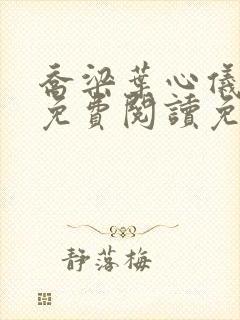 喬梁葉心儀
免費閱讀免
靜落梅